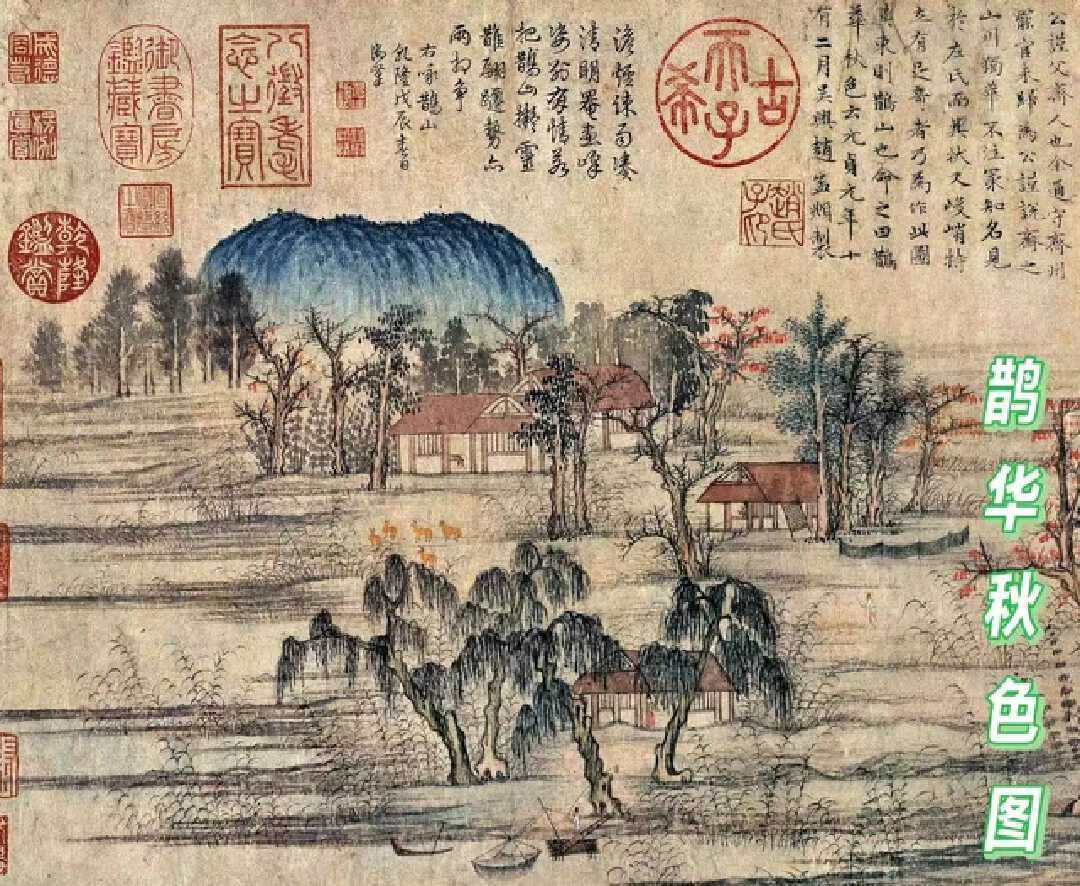 公謹父齊人也余通守齊州
罷官來歸為公謹說齊之
山川獨華不注冣知名見
於左氏而其狀又峻峭特
立有足奇者乃為作此圖
其東則鵲山也命之曰鵲
華秋色云元貞元年十
有二月吳興趙孟頫製
趙氏子昂
古希天子
澹煙疎雨湊
清明罨畫峰
姿有情若
把鵲山擬靈
鵲翩躚勢亦
兩相爭
右詠鵲山
乾隆戊辰
御筆
八徵耄念之寶
御書房鑑藏寶
乾隆鑑賞
鹊华秋色图